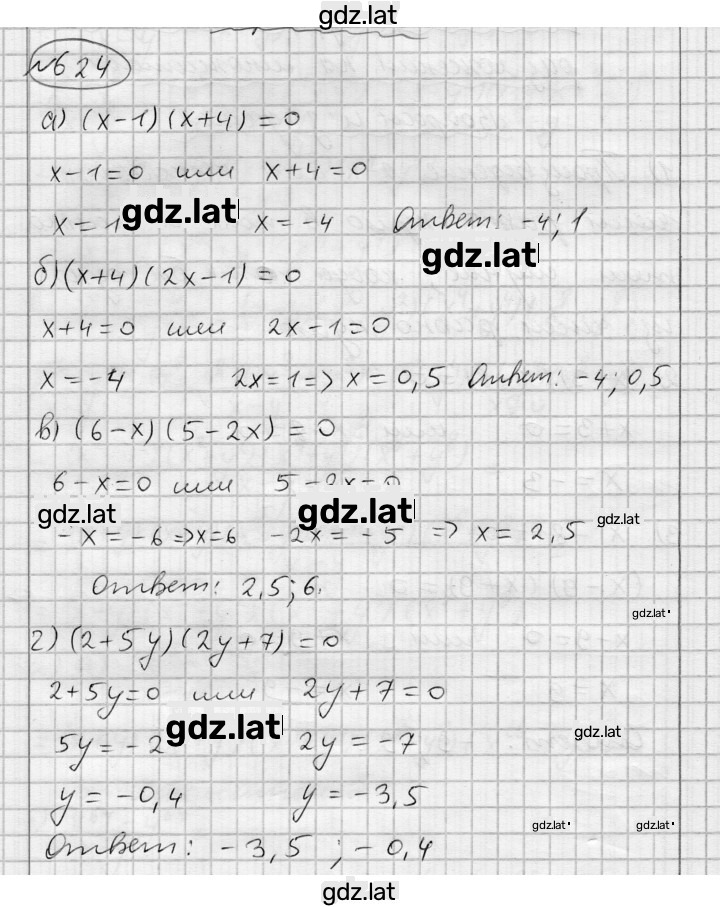 gdz.lat
№624
а) (x-1)(x+4)=0
x-1=0 или x+4=0
x=1 gdz.lat x=-4 Ответ: -4; 1
gdz.lat
б) (x+4)(2x-1)=0
x+4=0 или 2x-1=0
x=-4 2x=1=> x=0,5 Ответ: -4; 0,5
в) (6-x)(5-2x)=0
6-x=0 или 5-2x=0
gdz.lat gdz.lat gdz.lat
-x=-6=>x=6 -2x=-5 => x=2,5
Ответ: 2,5; 6.
gdz.lat
г) (2+5y)(2y+7)=0
2+5y=0 или 2y+7=0
gdz.lat gdz.lat
5y=-2 2y=-7
y=-0,4 y=-3,5
gdz.lat gdz.lat
Ответ: -3,5; -0,4
gdz.lat